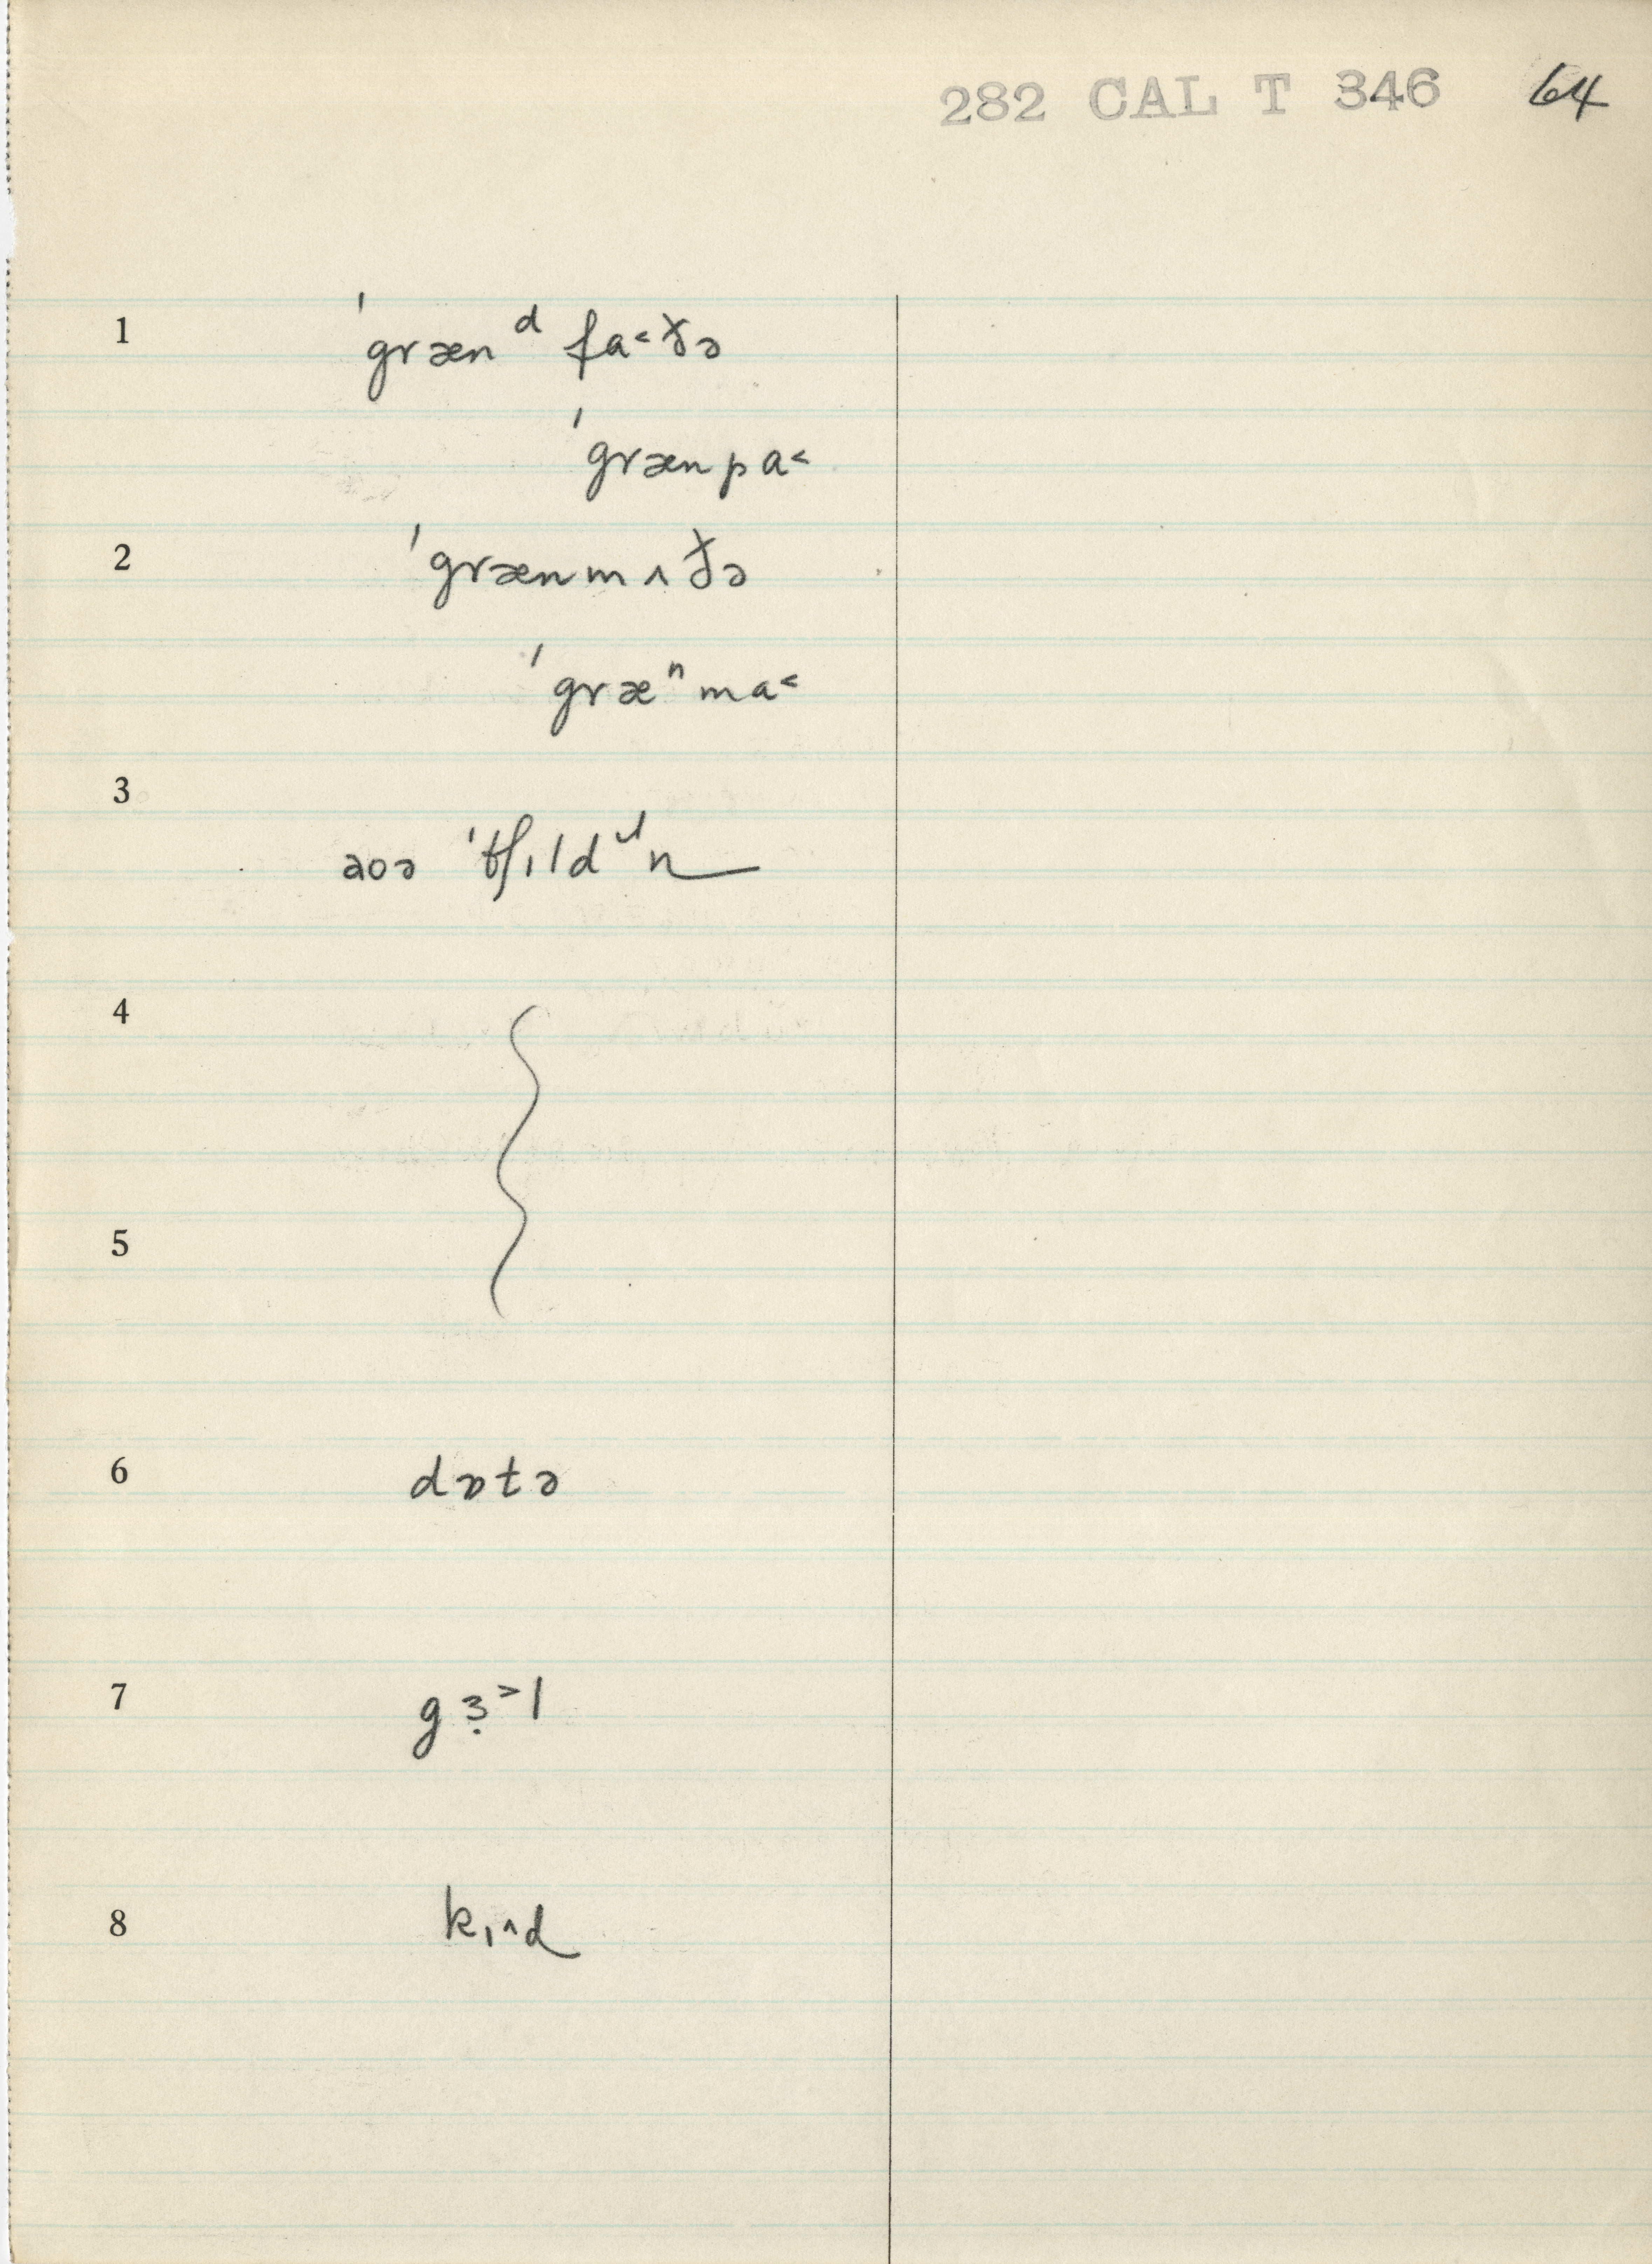 282 CAL T 346 64
1 ˈgrænᵈ fa˂ðə
ˈgrænpa˂
2 ˈgrænmʌðə
ˈgræⁿma˂
3 aoə ˈtʃɪldɹn
4
5
6 dɒtə
7 gɜ̣˃l
8 kɪ^d